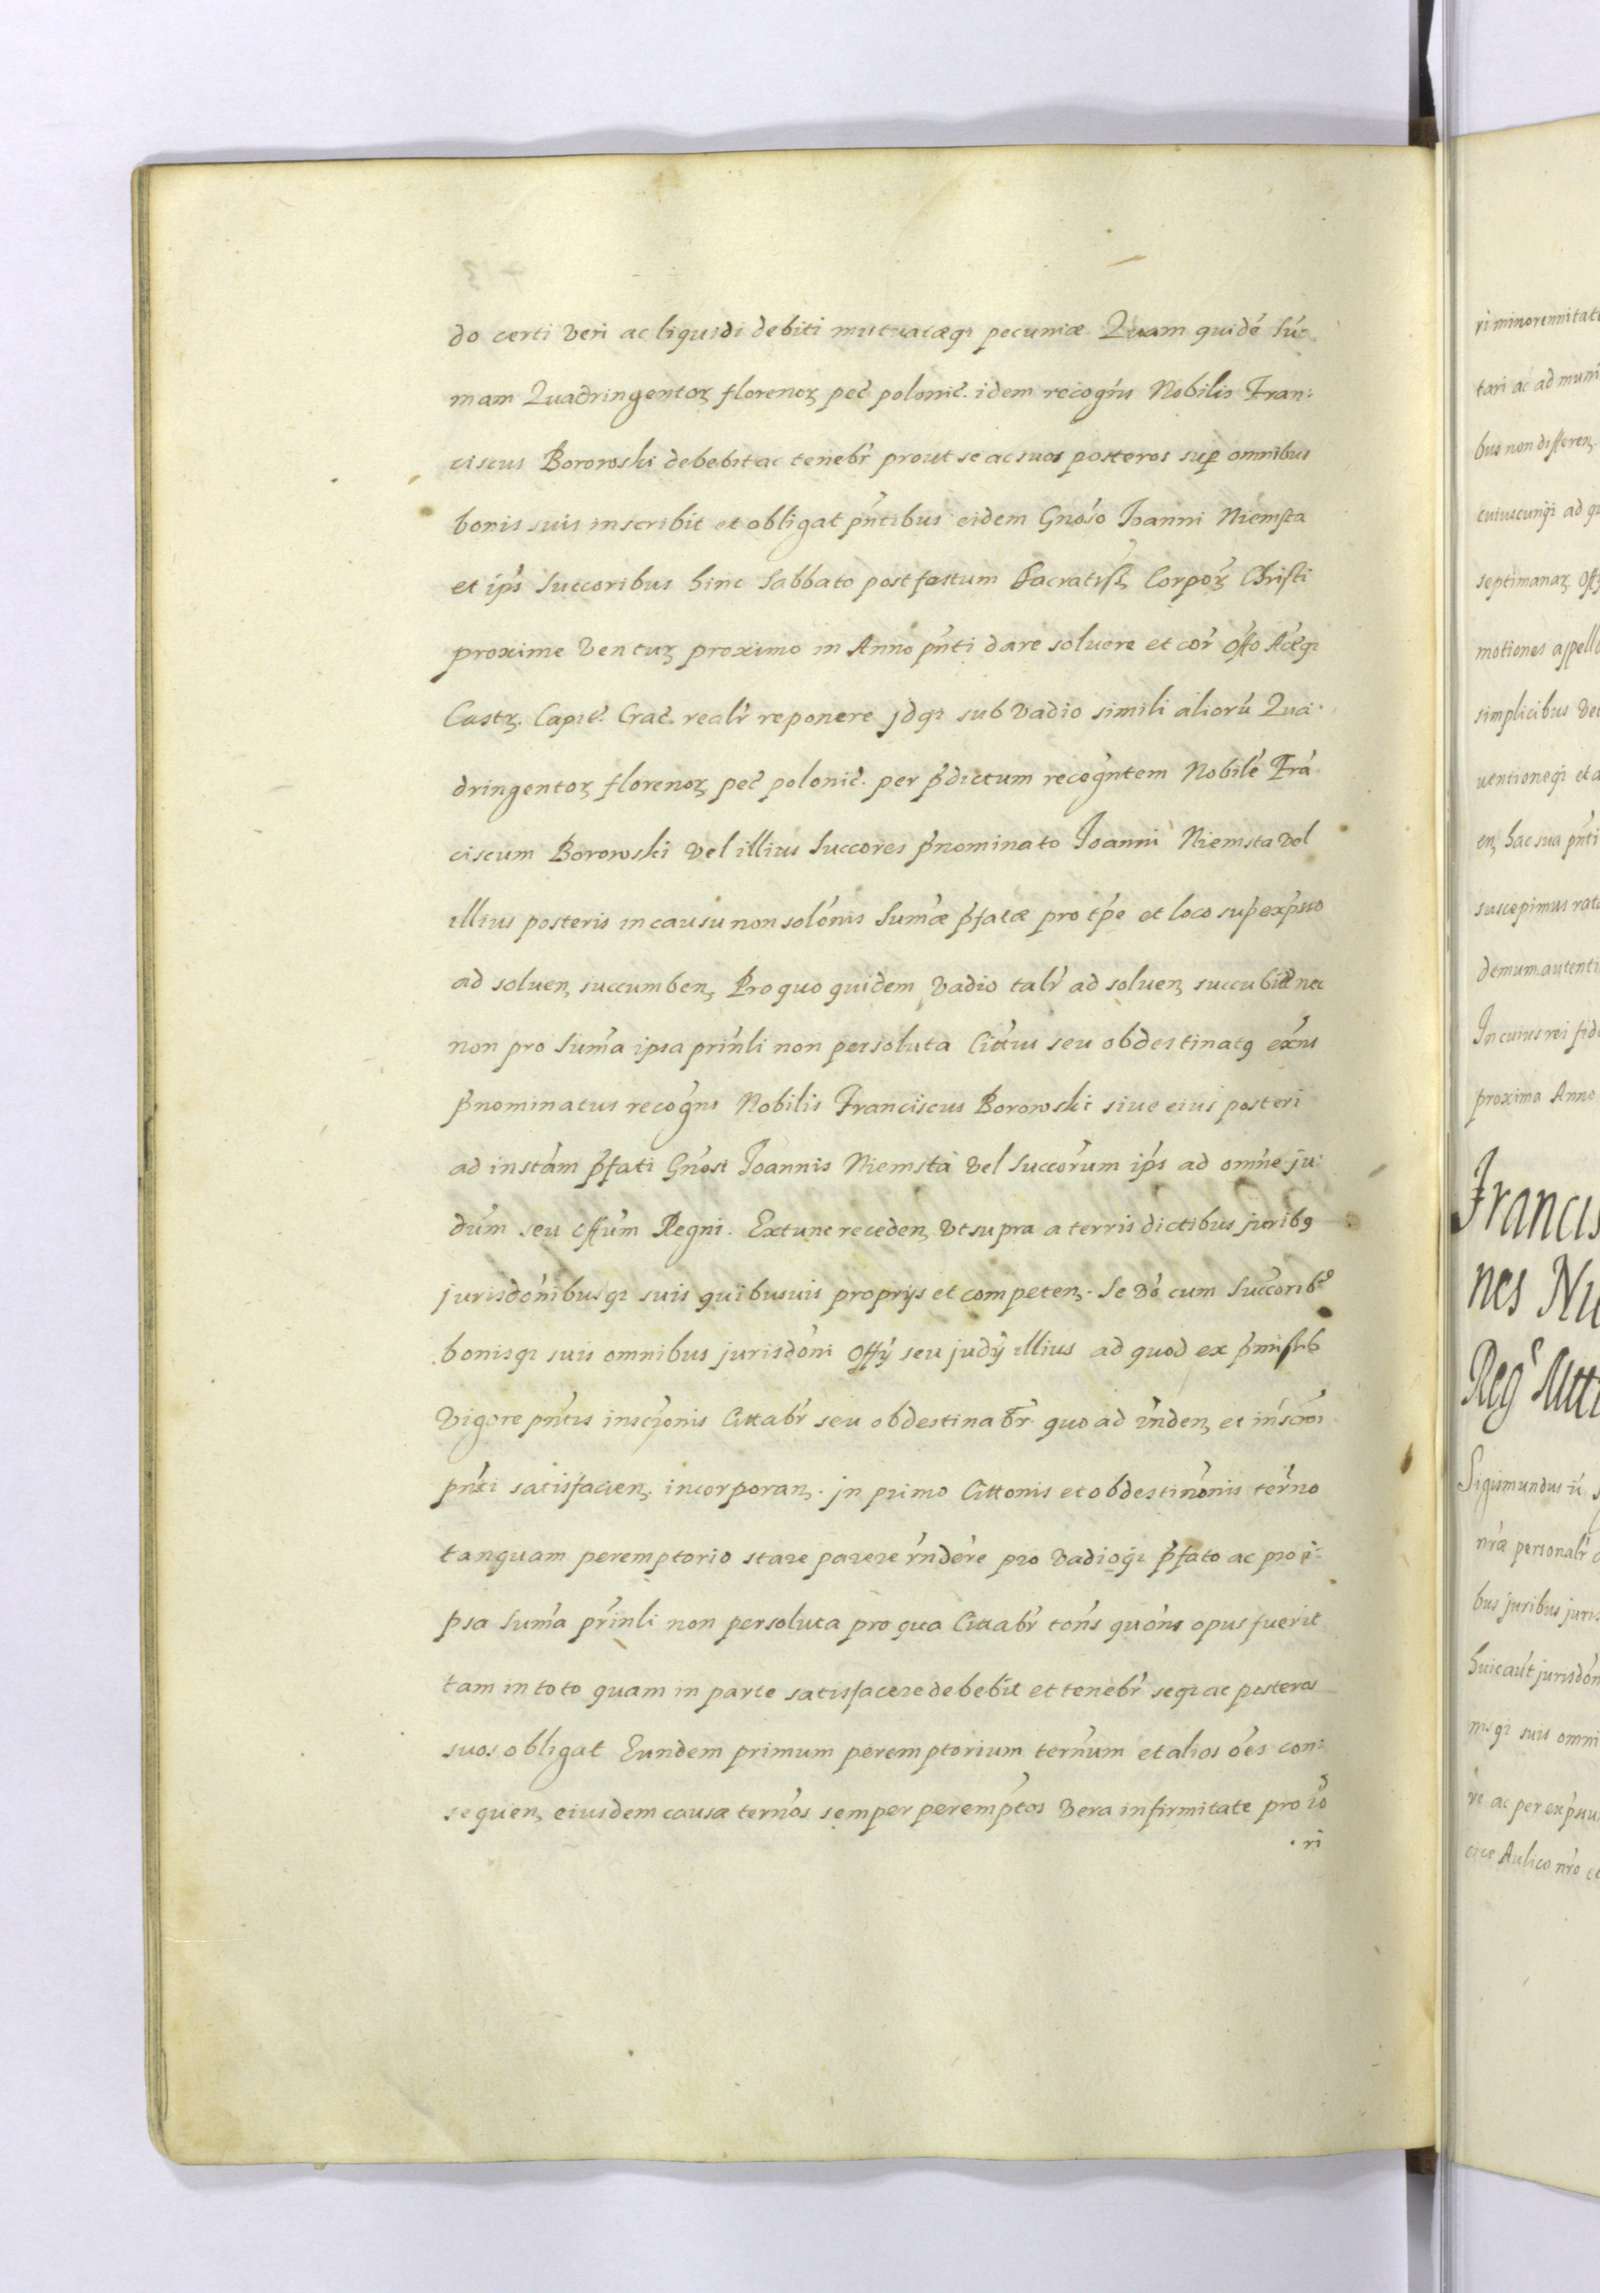 do certi veri ac liquidi debiti mutuatæq₃ pecuniæ Quam quidē Sū₌
mam Quadringentoꝝ florenoꝝ pec̃ polonic̃. idem recogñs Nobilis Fran:
ciscus Borowski debebit ac tenebr̃ prout se ac suos posteros sup̃ omnibus
bonis suis inscribit et obligat pñtibus eidem Gnõso Joanni Niemsta
et ip̃s Succoribus hinc Sabbato post festum Sacratiss̃ Corpoꝝ Christi
proxime Ventuꝝ proximo in Anno pñti dare soluere et cor̃ Offo Actẽq₃
Castꝝ. Capit̃. Crac̃. realr̃ reponere jdq₃ sub vadio simili aliorũ Qua:
dringentoꝝ florenoꝝ pec̃ polonic̃. per p̃dictum recogñtem Nobilē Frā
ciscum Borowski vel illius Succores p̃nominato Joanni Niemsta vel
illius posteris in causu non solõnis Sum̃æ p̃fatæ pro tp̃e et loco sup̃exp̃sso
ad soluenꝫ succumbenꝫ Pro quo quidem vadio talr̃ ad soluenꝫ succubit nec
non pro Sum̃a ipsa prin̄li non persoluta Citt̃us seu obdestinatꝯ ex̃ns
p̃nominatus recogñs Nobilis Franciscus Borowski siue eius posteri
ad instãm p̃fati Gnõsi Joannis Niemsta vel Succorũm ip̃s ad omne ju:
dũm seu offũm Regni. Extunc recedenꝫ vt supra a terris dictibus juribꝯ
jurisdõnibusq₃ suis quibusuis proprijs et competenꝫ. Se võ cum Succorib₉
bonisq₃ suis omnibus jurisdõni Offỹ seu judỹ illius ad quod ex p̃missꝭ
vigore pñtis inscr̃onis Cittabr̃ seu obdestinabr̃ quo ad r̃ndenꝫ et inscr̃oi
pñti satisfacienꝫ. incorporanꝫ. jn primo Cittonis et obdestinõnis ter̃no
tanquam peremptorio stare parere r̃ndere pro vadioq₃ p̃fato ac pro i:
psa Sum̃a prin̄li non persoluta pro qua Cittabr̃ tõns quõns opus fuerit
tam in toto quam in parte satisfacere debebit et tenebr̃ seq₃ ac posteros
suos obligat Eundem primum peremptorium ter̃num et alios oẽs con:
sequenꝫ eiusdem causæ ter̃nos semper peremptos vera infirmitate pro io
ri
ri minorennitati
tari ac ad muni
bus non differenꝫ.
cuiuscunq₃ ad q
septimanaꝝ Off
motiones appella
simplicibus ve
uentioneq₃ et a
enꝫ hac sua pñti
suscepimus rat
demum autenti
In cuius rei fid
proxima Anno
Francis
nes Ni
Reg
Sigismundus
nr̃æ personalr̃
bus juribus juris
huic aũt jurisdõn
nisq₃ suis omni
re ac per exp̃ssu
Aulico nr̃o